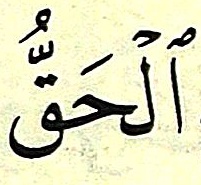 ٱلۡحَقُّ